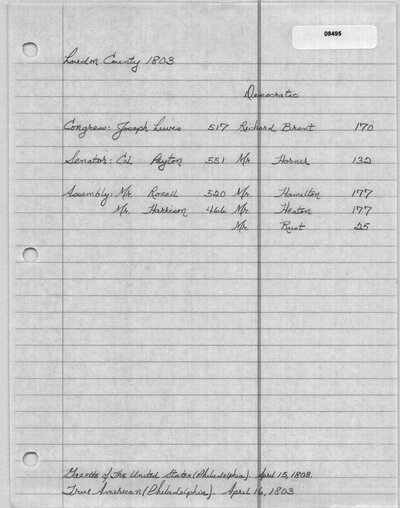 08495
Loudon County 1803
Democratic
Congress: Joseph Lewis 517 Richard Brent 170
Senator: Col Peyton 551 Mr. Horner 132
Assembly: Mr. Rozell 520 Mr. Hamilton 177
Mr. Harrison 466 Mr. Heaton 177
Mr. Rust 25
Gazette of the United States (Philadelphia). April 15, 1803.
True American (Philadelphia). April 16, 1803